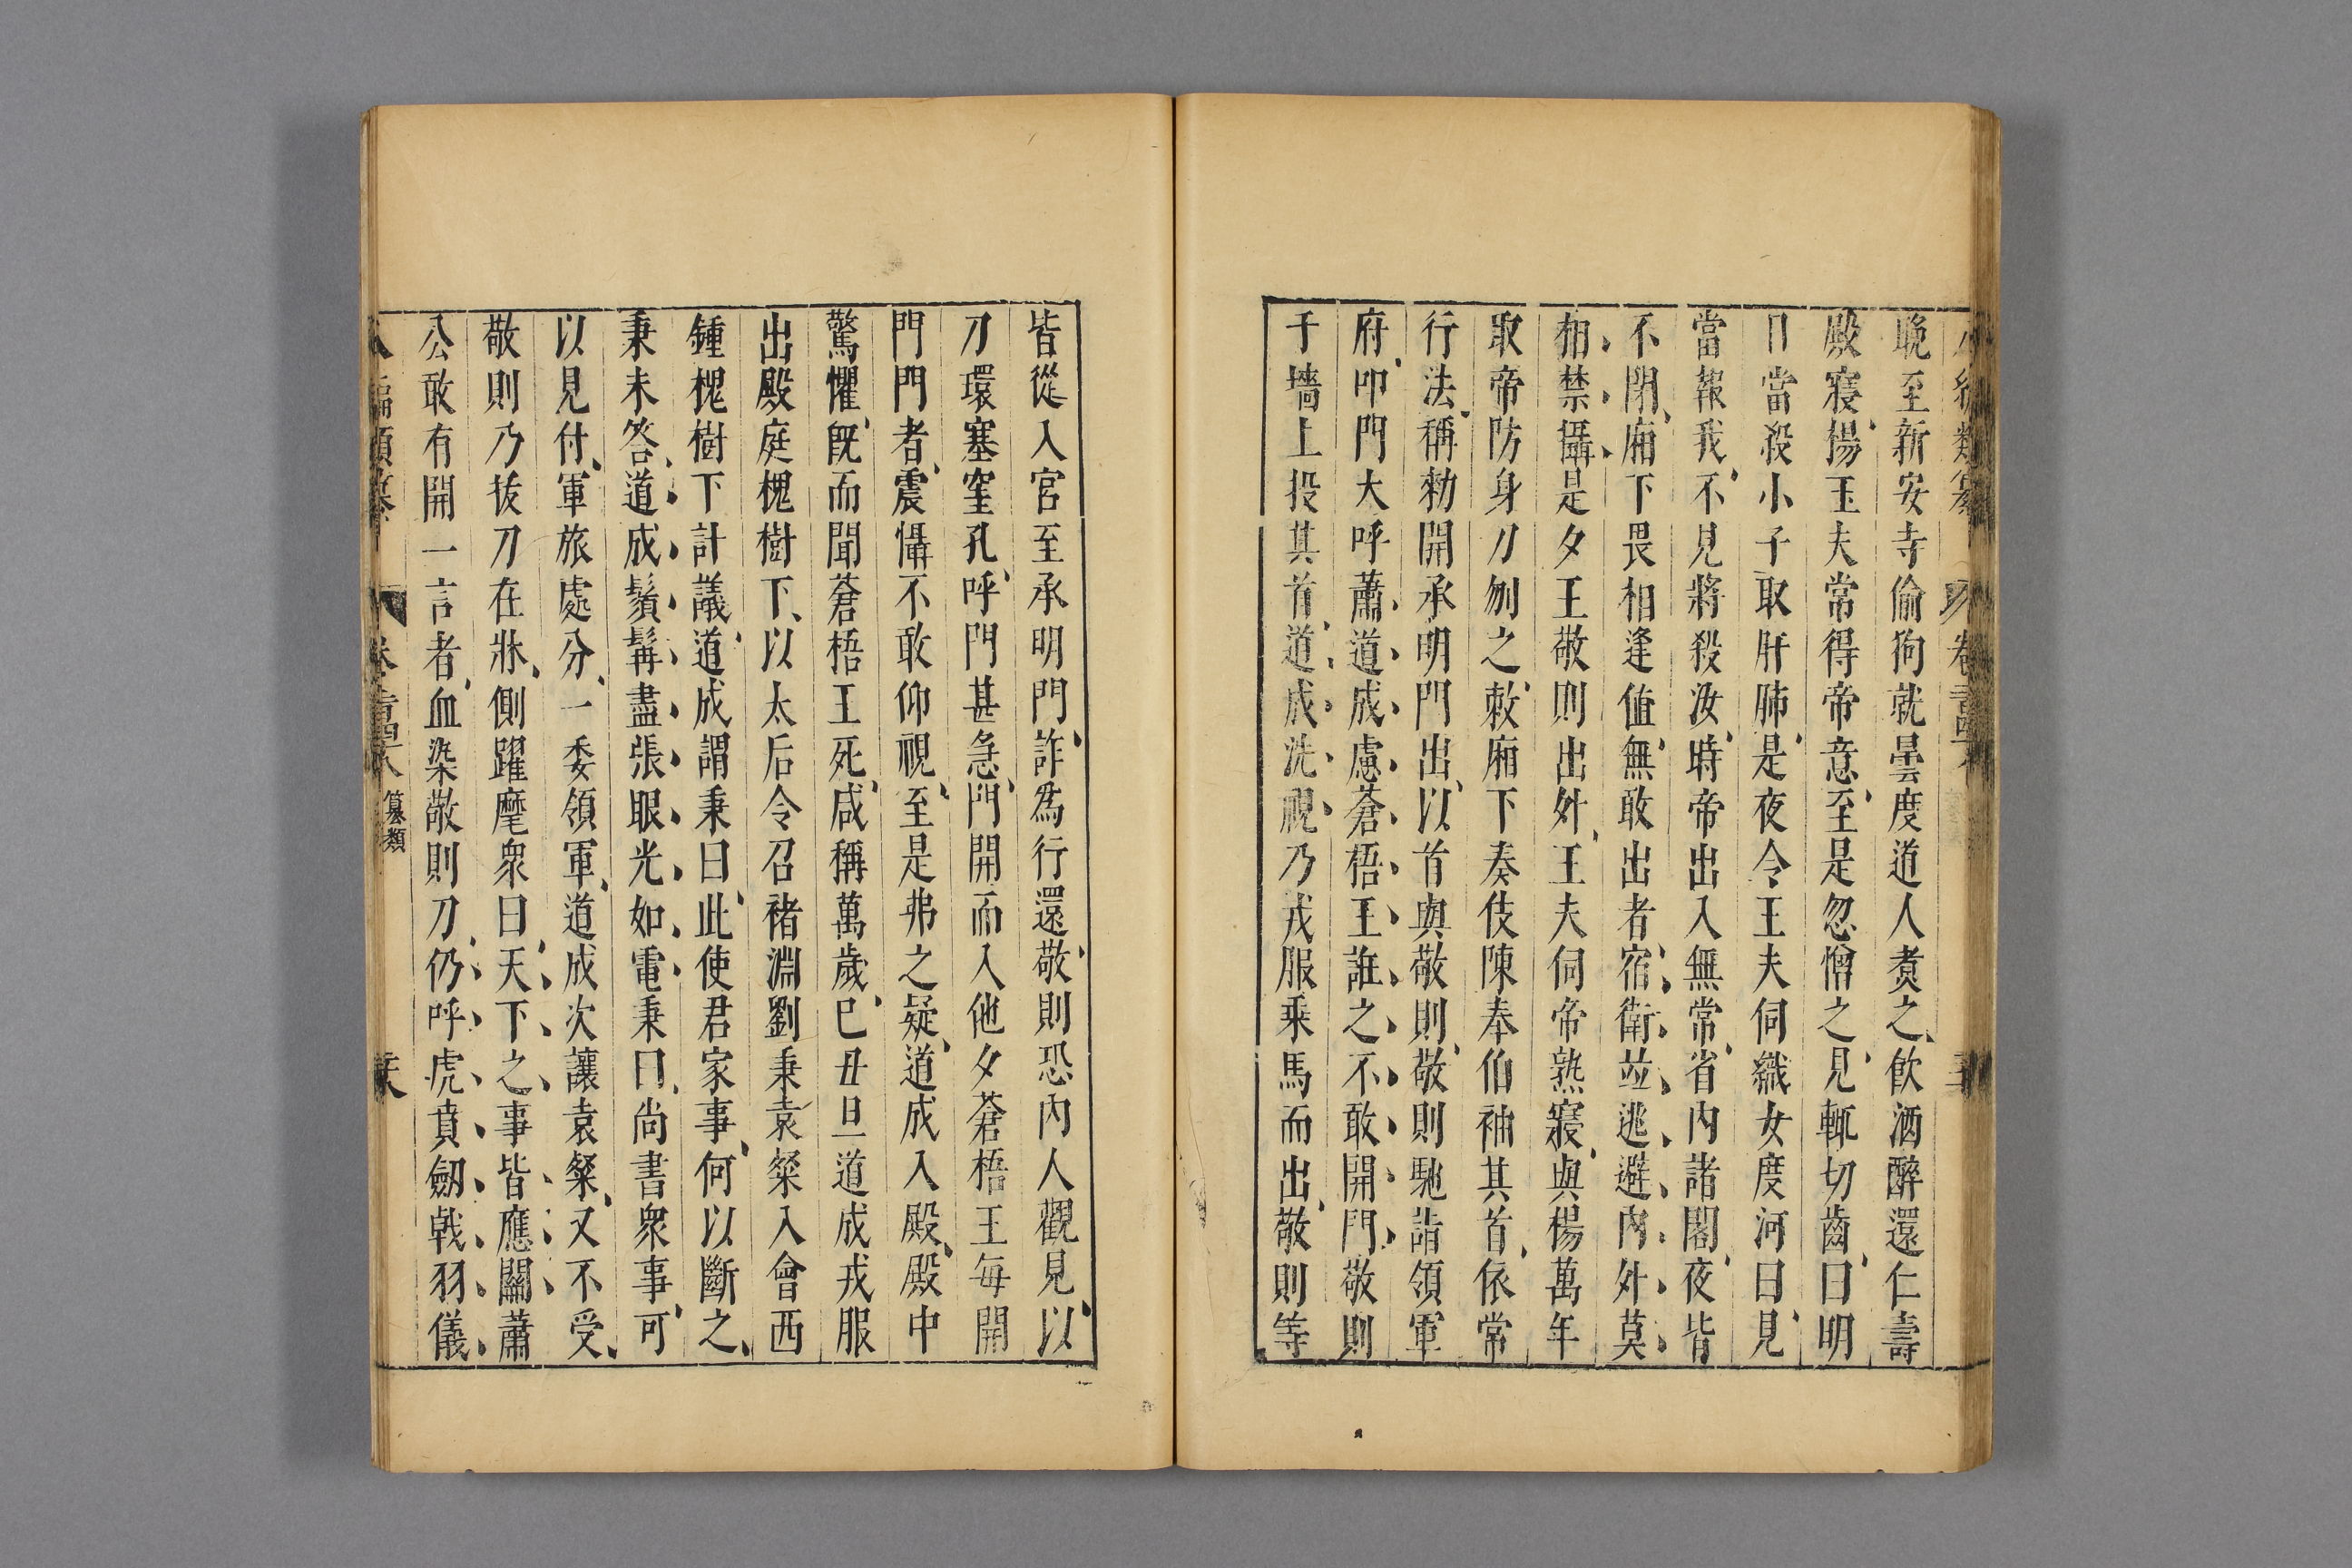 晚至新安寺偷狗就曇度道人煮之飲酒醉還仁壽
殿寢楊玉夫常得帝意至是忽憎之見輒切齒曰明
日當殺小子取肝肺是夜令王夫伺織女度河曰見
當報我不見將殺汝時帝出入無常省內諸閣夜皆
不閉廂下畏相逢值無敢出者宿衛竝逃避內外莫
相禁攝是夕王敬則出外王夫伺帝熟寢與楊萬年
取帝防身刀刎之敕廂下奏伎陳奉伯袖其首依常
行法稱勑開承明門出以首與敬則敬則馳詣領軍
府叩門大呼蕭道成慮蒼梧王誑之不敢開門敬則
于墻上投其首道成洗視乃戎服乘馬而出敬則等
皆從入宮至承明門詐為行還敬則恐內人覷見以
刀環塞窐孔呼門甚急門開而入他夕蒼梧王每開
門門者震懾不敢仰視至是弗之疑道成入殿殿中
驚懼旣而聞蒼梧王死咸稱萬歲巳丑旦道成戎服
出殿庭槐樹下以太后令召褚淵劉秉袁粲入會西
鍾槐樹下計議道成謂秉曰此使君家事何以斷之
秉未答道成鬚髯盡張眼光如電秉曰尚書衆事可
以見付軍旅處分一委領軍道成次讓袁粲又不受
敬則乃拔刀在牀側躍麾衆曰天下之事皆應關蕭
公敢有開一言者血染敬則刀仍呼虎賁劒戟羽儀
纂類